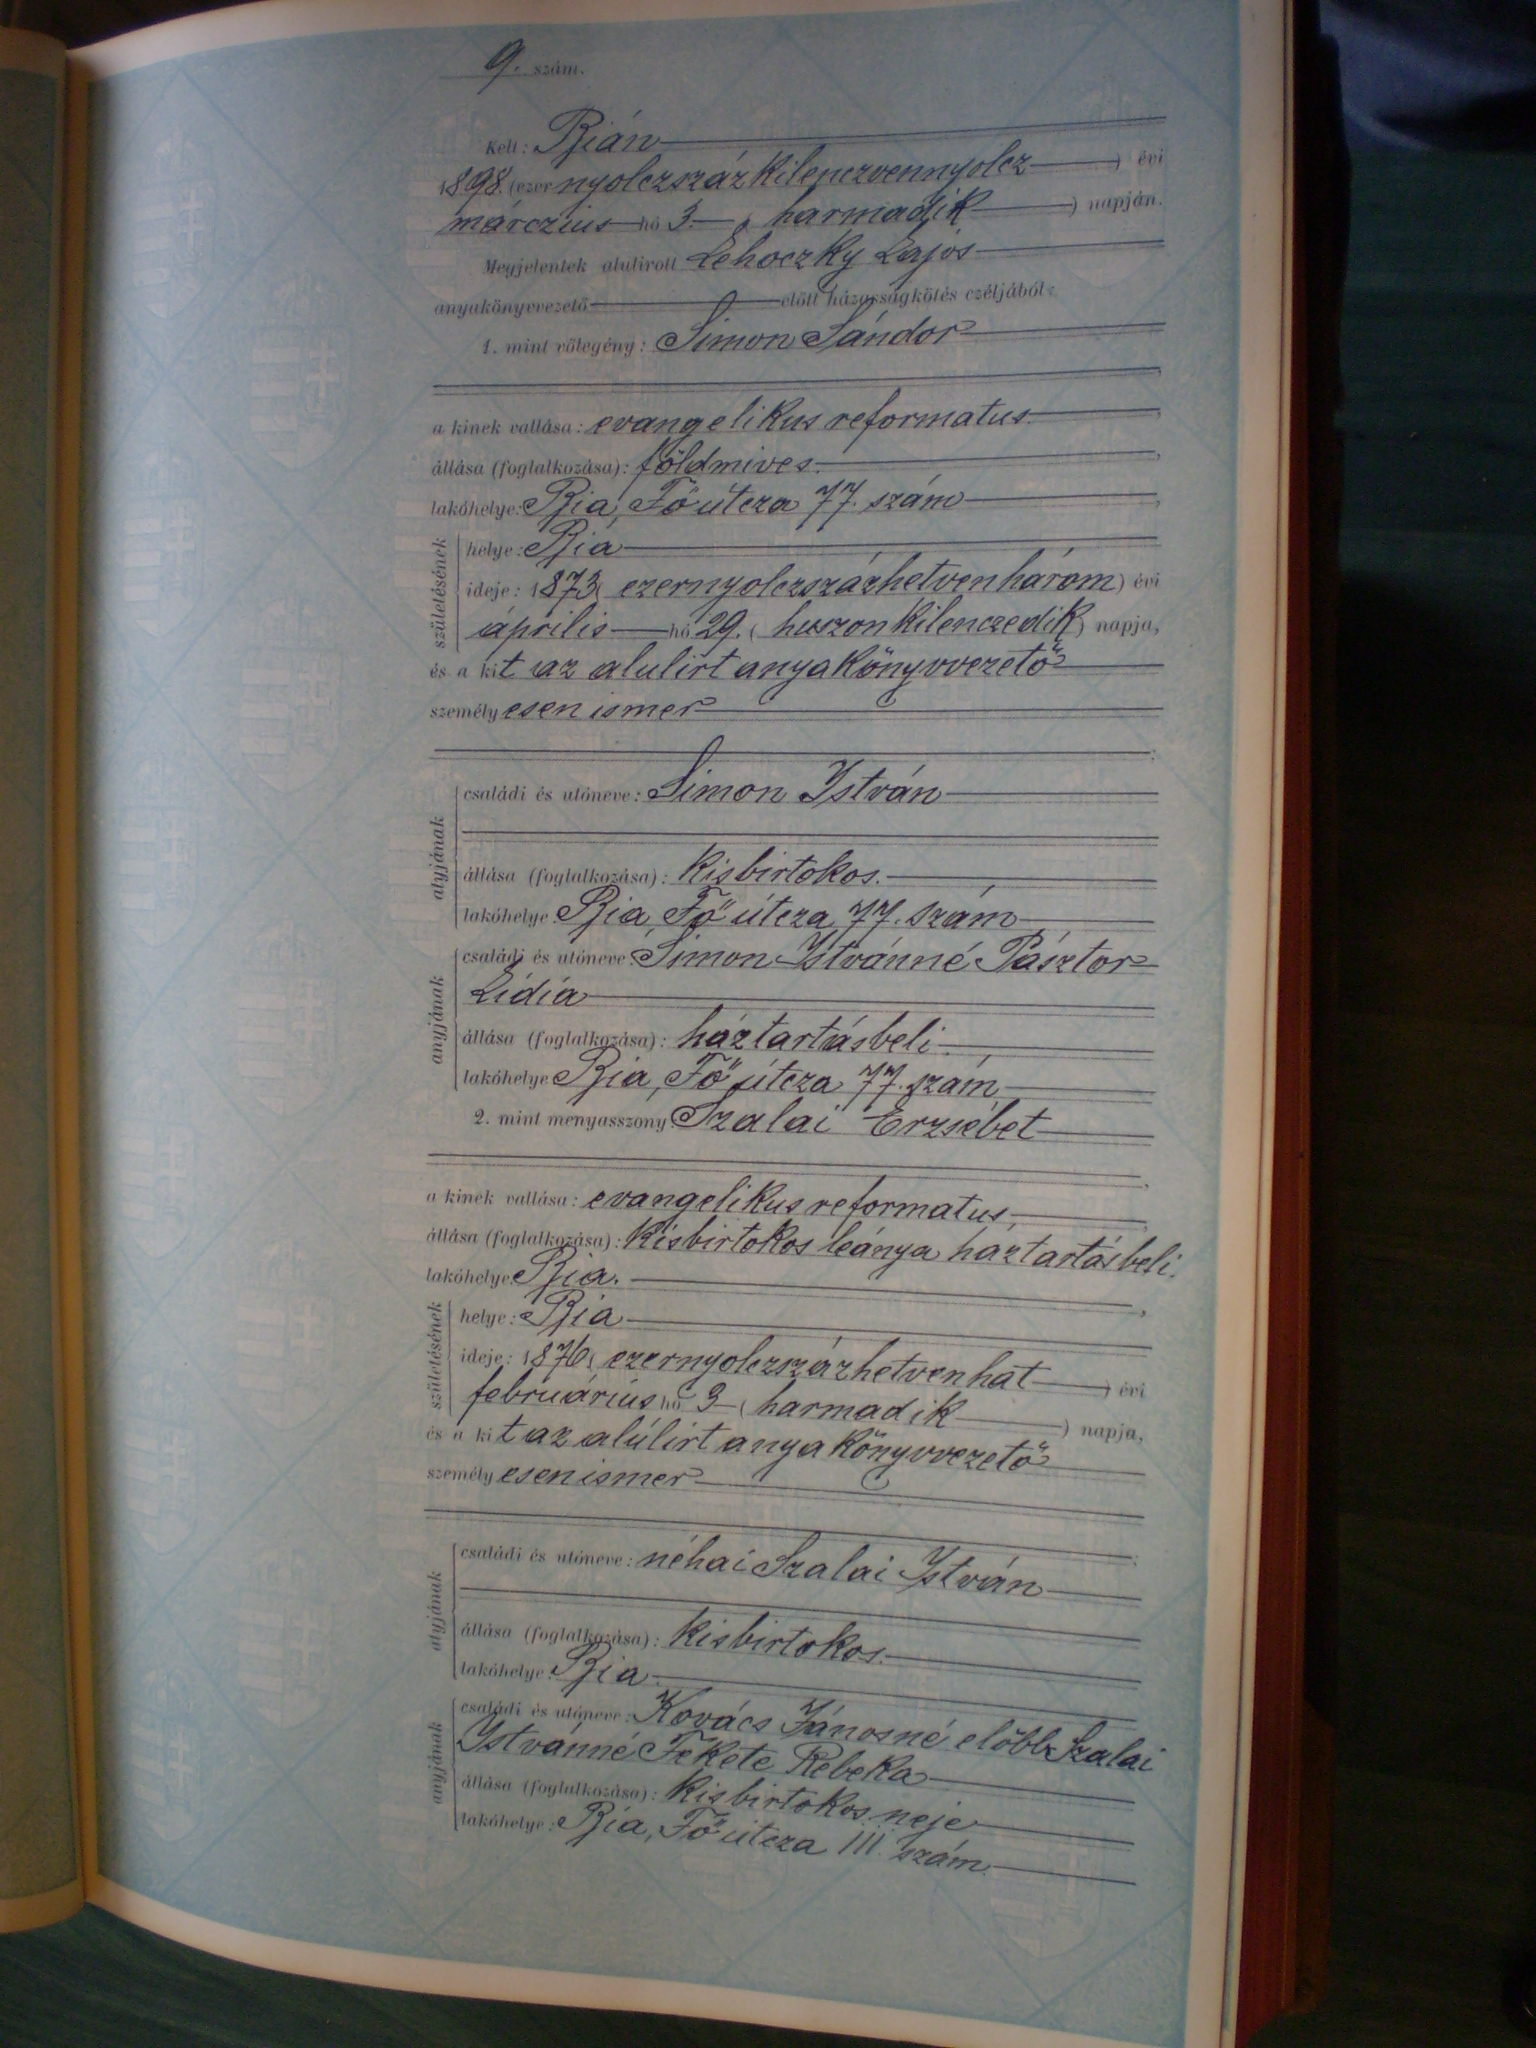 9. szám.
Kelt: Bián
1898. (ezer nyolczszáz kilenczvennyolcz) évi
márczius hó 3. ( harmadik ) napján.
Megjelentek alulirott Lehoczky Lajos
anyakönyvvezető előtt házasságkötés czéljából:
1. mint vőlegény: Simon Sándor
a kinek vallása: evangelikus reformatus
állása (foglalkozása): földmives.
lakóhelye: Bia, Fő útcza 77. szám
születésének
helye: Bia
ideje: 1873 ( ezernyolczszázhetvenhárom ) évi
április hó 29. ( huszonkilenczedik ) napja,
és a kit az alulirt anyakönyvvezető
személyesen ismer
atyjának
családi és utóneve: Simon István
állása (foglalkozása): kisbirtokos.
lakóhelye Bia, Fő útcza 77. szám
anyjának
családi és utóneve: Simon Istvánné Pásztor
Lidia
állása (foglalkozása): háztartásbeli.
lakóhelye Bia, Fő útcza 77. szám
2. mint menyasszony: Szalai Erzsébet
a kinek vallása: evangelikus reformatus,
állása (foglalkozása): kisbirtokos leánya háztartásbeli.
lakóhelye: Bia.
születésének
helye: Bia
ideje: 1876 ( ezernyolczszázhetvenhat ) évi
februárius hó 3 ( harmadik ) napja,
és a kit az alúlirt anyakönyvvezető
személyesen ismer
atyjának
családi és utóneve: néhai Szalai István
állása (foglalkozása): kisbirtokos.
lakóhelye: Bia
anyjának
családi és utóneve: Kovács Jánosné előbb Szalai
Istvánné Fekete Rebeka
állása (foglalkozása): kisbirtokos neje
lakóhelye: Bia, Fő útcza 111. szám.